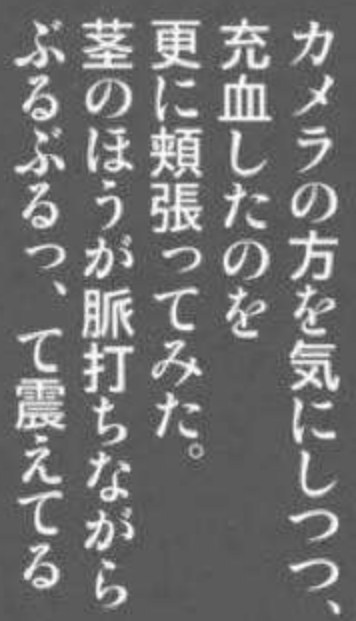 カメラの方を気にしつつ、
充血したのを
更に頬張ってみた。
茎のほうが脈打ちながら
ぶるぶるっ、て震えてる